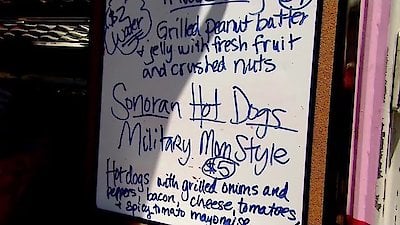 $2
Water
Grilled peanut batter
+ jelly with fresh fruit
and crushed nuts
Sonoran Hot Dogs
Military Mom Style
$5
Hotdogs with grilled onions and
peppers, bacon, cheese, tomatoes,
+ spicy tomato mayonaise